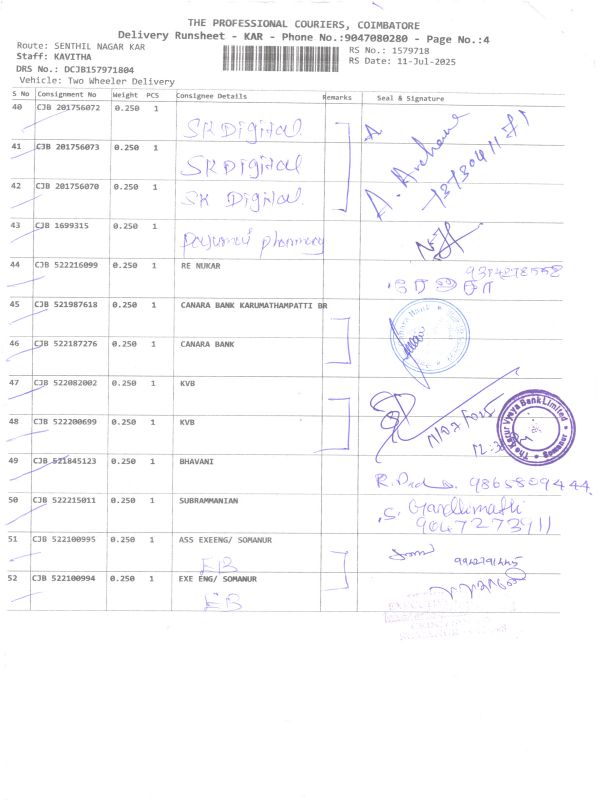 THE PROFESSIONAL COURIERS, COIMBATORE
Delivery Runsheet - KAR - Phone No.:9047080280 - Page No.:4
Route: SENTHIL NAGAR KAR
RS No.: 1579718
Staff: KAVITHA
RS Date: 11-Jul-2025
DRS No.: DCJB157971804
Vehicle: Two Wheeler Delivery
S No Consignment No Weight PCS Consignee Details Remarks Seal & Signature
40 CJB 201756072 0.250 1 SK Digital
41 CJB 201756073 0.250 1 SK Digital
42 CJB 201756070 0.250 1 SK Digital
43 CJB 1699315 0.250 1 pharmacy
44 CJB 522216099 0.250 1 RE NUKAR
45 CJB 521987618 0.250 1 CANARA BANK KARUMATHAMPATTI BR
46 CJB 522187276 0.250 1 CANARA BANK
47 CJB 522082002 0.250 1 KVB
48 CJB 522200699 0.250 1 KVB
The Karur Vysya Bank Limited
Somanur
49 CJB 521845123 0.250 1 BHAVANI
9865809444
50 CJB 522215011 0.250 1 SUBRAMMANIAN S. Gandhimathi
9047273411
51 CJB 522100995 0.250 1 ASS EXEENG/ SOMANUR
EB
52 CJB 522100994 0.250 1 EXE ENG/ SOMANUR
EB